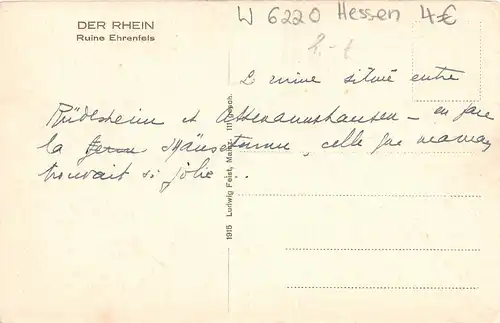 DER RHEIN
Ruine Ehrenfels
W 6220 Hessen 4€
2.-€
ruine située entre
Rüdesheim et Assmannshausen - en face
la Mäuseturm, celle que maman
trouvait si jolie ...
1915 Ludwig Feist, Mainz